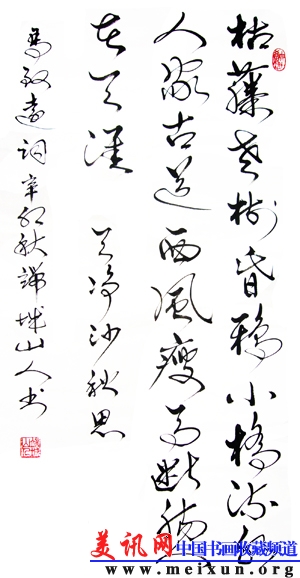 枯藤老树昏鸦小桥流水
人家古道西風瘦马断肠
在天涯 天净沙秋思
马致远词辛卯秋城山人书
美讯网 中国书画收藏频道
www.meixun.org